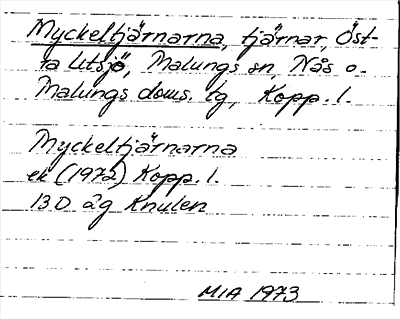 Myckeltjärnarna, tjärnar, Öst-
ra Utsjö, Malungs sn, Nås o.
Malungs doms. tg, Kopp. l.
Myckeltjärnarna
ek (1972) Kopp. l.
13D åg Knulen
MIA 1973